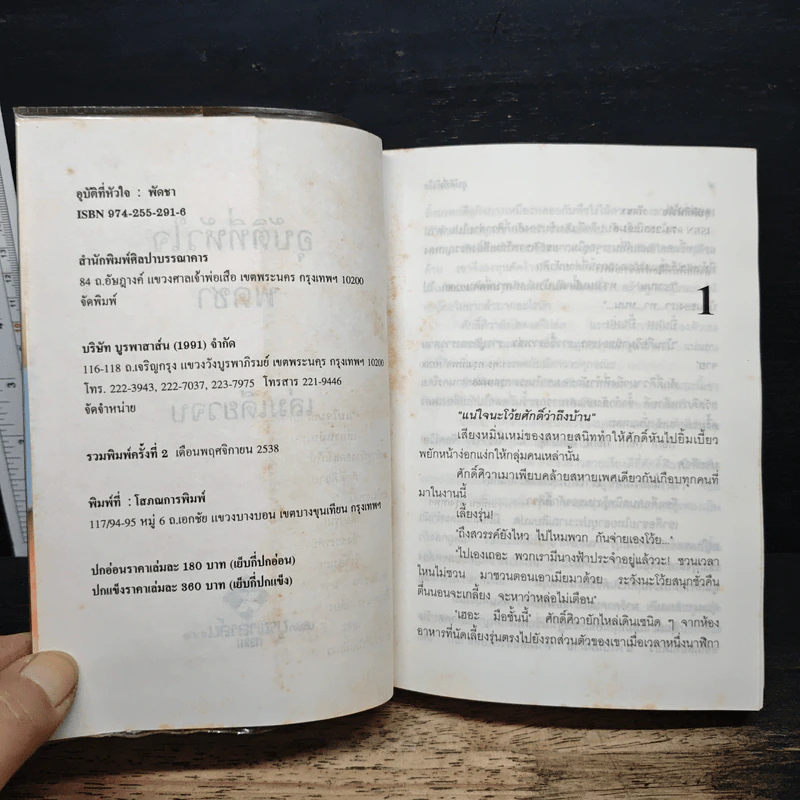 อุบัติที่หัวใจ : พัดชา
ISBN 974-255-291-6
สำนักพิมพ์ศิลปาบรรณาคาร
84 ถ.อัษฎางค์ แขวงศาลเจ้าพ่อเสือ เขตพระนคร กรุงเทพฯ 10200
จัดพิมพ์
บริษัท บูรพาสาส์น (1991) จำกัด
116-118 ถ.เจริญกรุง แขวงวังบูรพาภิรมย์ เขตพระนคร กรุงเทพฯ 10200
โทร. 222-3943, 222-7037, 223-7975 โทรสาร 221-9446
จัดจำหน่าย
รวมพิมพ์ครั้งที่ 2 เดือนพฤศจิกายน 2538
พิมพ์ที่ : โสภณการพิมพ์
117/94-95 หมู่ 6 ถ.เอกชัย แขวงบางบอน เขตบางขุนเทียน กรุงเทพฯ
ปกอ่อนราคาเล่มละ 180 บาท (เย็บกี่ปกอ่อน)
ปกแข็งราคาเล่มละ 360 บาท (เย็บกี่ปกแข็ง)
1
"แน่ใจนะโว้ยศักดิ์ว่าถึงบ้าน"
เสียงหมิ่นเหม่ของสหายสนิททำให้ศักดิ์หันไปยิ้มเบี้ยว
พยักหน้างอกแง่กให้กลุ่มคนเหล่านั้น
ศักดิ์ศิวาเมาเพียบคล้ายสหายเพศเดียวกันเกือบทุกคนที่
มาในงานนี้
เลี้ยงรุ่น!
'ถึงสวรรค์ยังไหว ไปไหมพวก กันจ่ายเองโว้ย...'
'ไปเองเถอะ พวกเรามีนางฟ้าประจำอยู่แล้ววะ! ชวนเวลา
ไหนไม่ชวน มาชวนตอนเอาเมียมาด้วย ระวังนะโว้ยสนุกชั่วคืน
ตื่นนอนจะเกลี้ยง จะหาว่าหล่อไม่เตือน'
'เฮอะ มือชั้นนี้' ศักดิ์ศิวายักไหล่เดินเซนิด ๆ จากห้อง
อาหารที่นัดเลี้ยงรุ่นตรงไปยังรถส่วนตัวของเขาเมื่อเวลาหนึ่งนาฬิกา